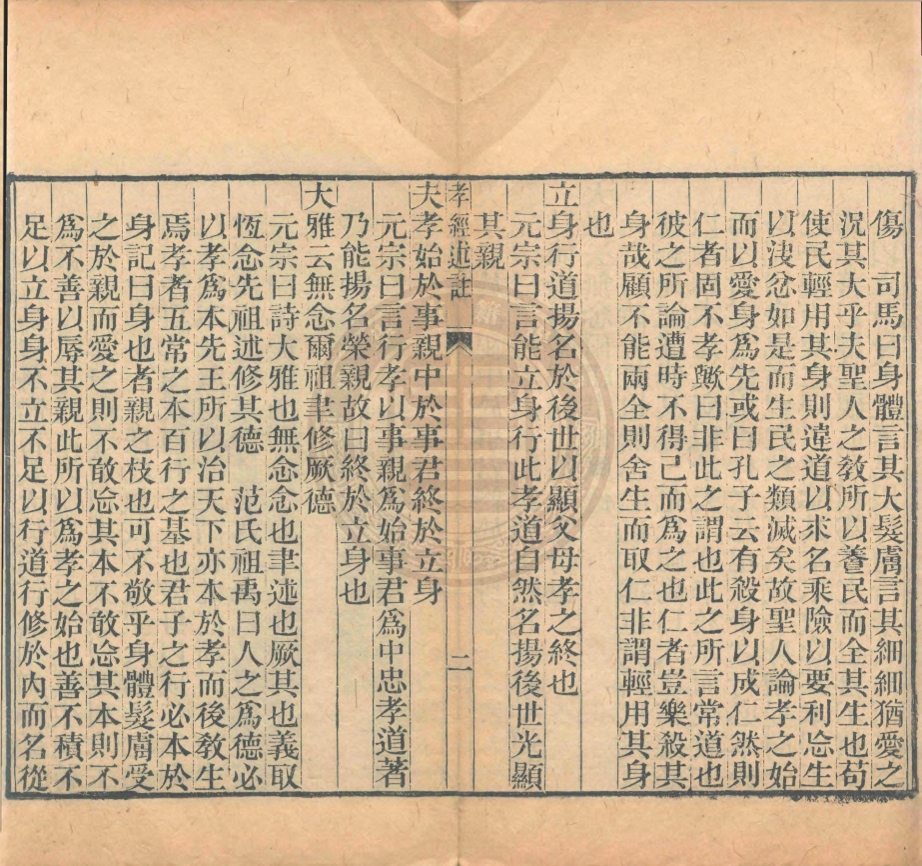 傷　司馬曰身體言其大髮膚言其細細猶愛之
況其大乎夫聖人之敎所以養民而全其生也苟
使民輕用其身則違道以求名乘險以要利忘生
以決忿如是而生民之類滅矣故聖人論孝之始
而以愛身爲先或曰孔子云有殺身以成仁然則
仁者固不孝歟曰非此之謂也此之所言常道也
彼之所論遭時不得已而爲之也仁者豈樂殺其
身哉顧不能兩全則舍生而取仁非謂輕用其身
也
立身行道揚名於後世以顯父母孝之終也
元宗曰言能立身行此孝道自然名揚後世光顯
其親
孝經述註
二
夫孝始於事親中於事君終於立身
元宗曰言行孝以事親爲始事君爲中忠孝道著
乃能揚名榮親故曰終於立身也
大雅云無念爾祖聿修厥德
元宗曰詩大雅也無念念也聿述也厥其也義取
恆念先祖述修其德　范氏祖禹曰人之爲德必
以孝爲本先王所以治天下亦本於孝而後敎生
焉孝者五常之本百行之基也君子之行必本於
身記曰身也者親之枝也可不敬乎身體髮膚受
之於親而愛之則不敢忘其本不敢忘其本則不
爲不善以辱其親此所以爲孝之始也善不積不
足以立身身不立不足以行道行修於內而名從